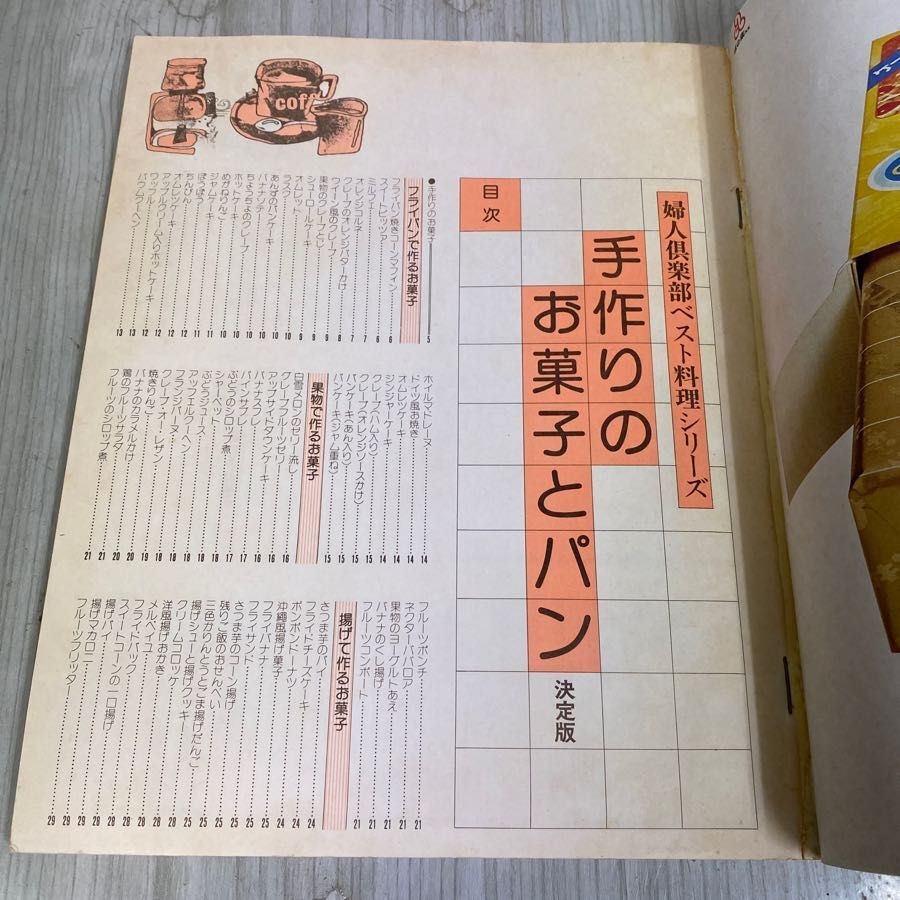 婦人倶楽部ベスト料理シリーズ
手作りの
お菓子とパン
決定版
目次
coff
●手作りのお菓子
5
フライパンで作るお菓子
フライパン焼きコーンマフィン 6
スイートピッツァ 6
ミルフィー 7
オレンジコルネ 7
クレープのオレンジバターかけ 8
ウイーン風のクレープ 8
果物のクレープとじ 9
シューロールケーキ 9
オムレット 9
ラスク 10
あんずのパンケーキ 10
バナナソテー 10
ちょうちょのクレープ 10
ホットケーキ 10
めがねりんご 11
ジャムケーキ 11
ぽうぽう 11
ちんびん 12
オムレツケーキ 12
アップルクリーム入りホットケーキ 12
ワッフル 13
バウムクーヘン 13
ホイルマドレーヌ 14
ドイツ風お焼き 14
オムレツケーキ 14
ジンジャーケーキ 14
クレープ(ハム入り) 15
クレープ(オレンジソースかけ) 15
パンケーキ(あん入り) 15
パンケーキ(ジャム重ね) 15
果物で作るお菓子
白雪メロンのゼリー流し 16
グレープフルーツゼリー 16
アップサイドダウンケーキ 16
バナナスフレ 16
パインサフレ 17
ぶどうのシロップ煮 17
シャーベット 18
ぶどうジュース 18
アップフェルクーヘン 18
フランジパーヌ 18
クレープ・オ・レザン 18
焼きりんご 19
バナナのカラメルかけ 20
鶏のフルーツサラダ 20
フルーツのシロップ煮 21
フルーツポンチ 21
ネクターババロア 21
果物のヨーグルトあえ 21
バナナのくし揚げ 21
フルーツコンポート 21
揚げて作るお菓子
さつま芋のパイ 24
フライドチーズケーキ 24
ボンボンドーナツ 24
沖縄風揚げ菓子 25
フライバナナ 25
フライサンド 25
さつま芋のコーン揚げ 25
残りご飯のおせんべい 25
三色かりんとうとごま揚げだんご 25
揚げシューと揚げクッキー 25
クリームコロッケ 28
洋風揚げおかき 28
メルベイユ 28
フライドパック 28
スイートコーンの一口揚げ 28
揚げパイ 29
揚げマカロニー 29
フルーツフリッター 29